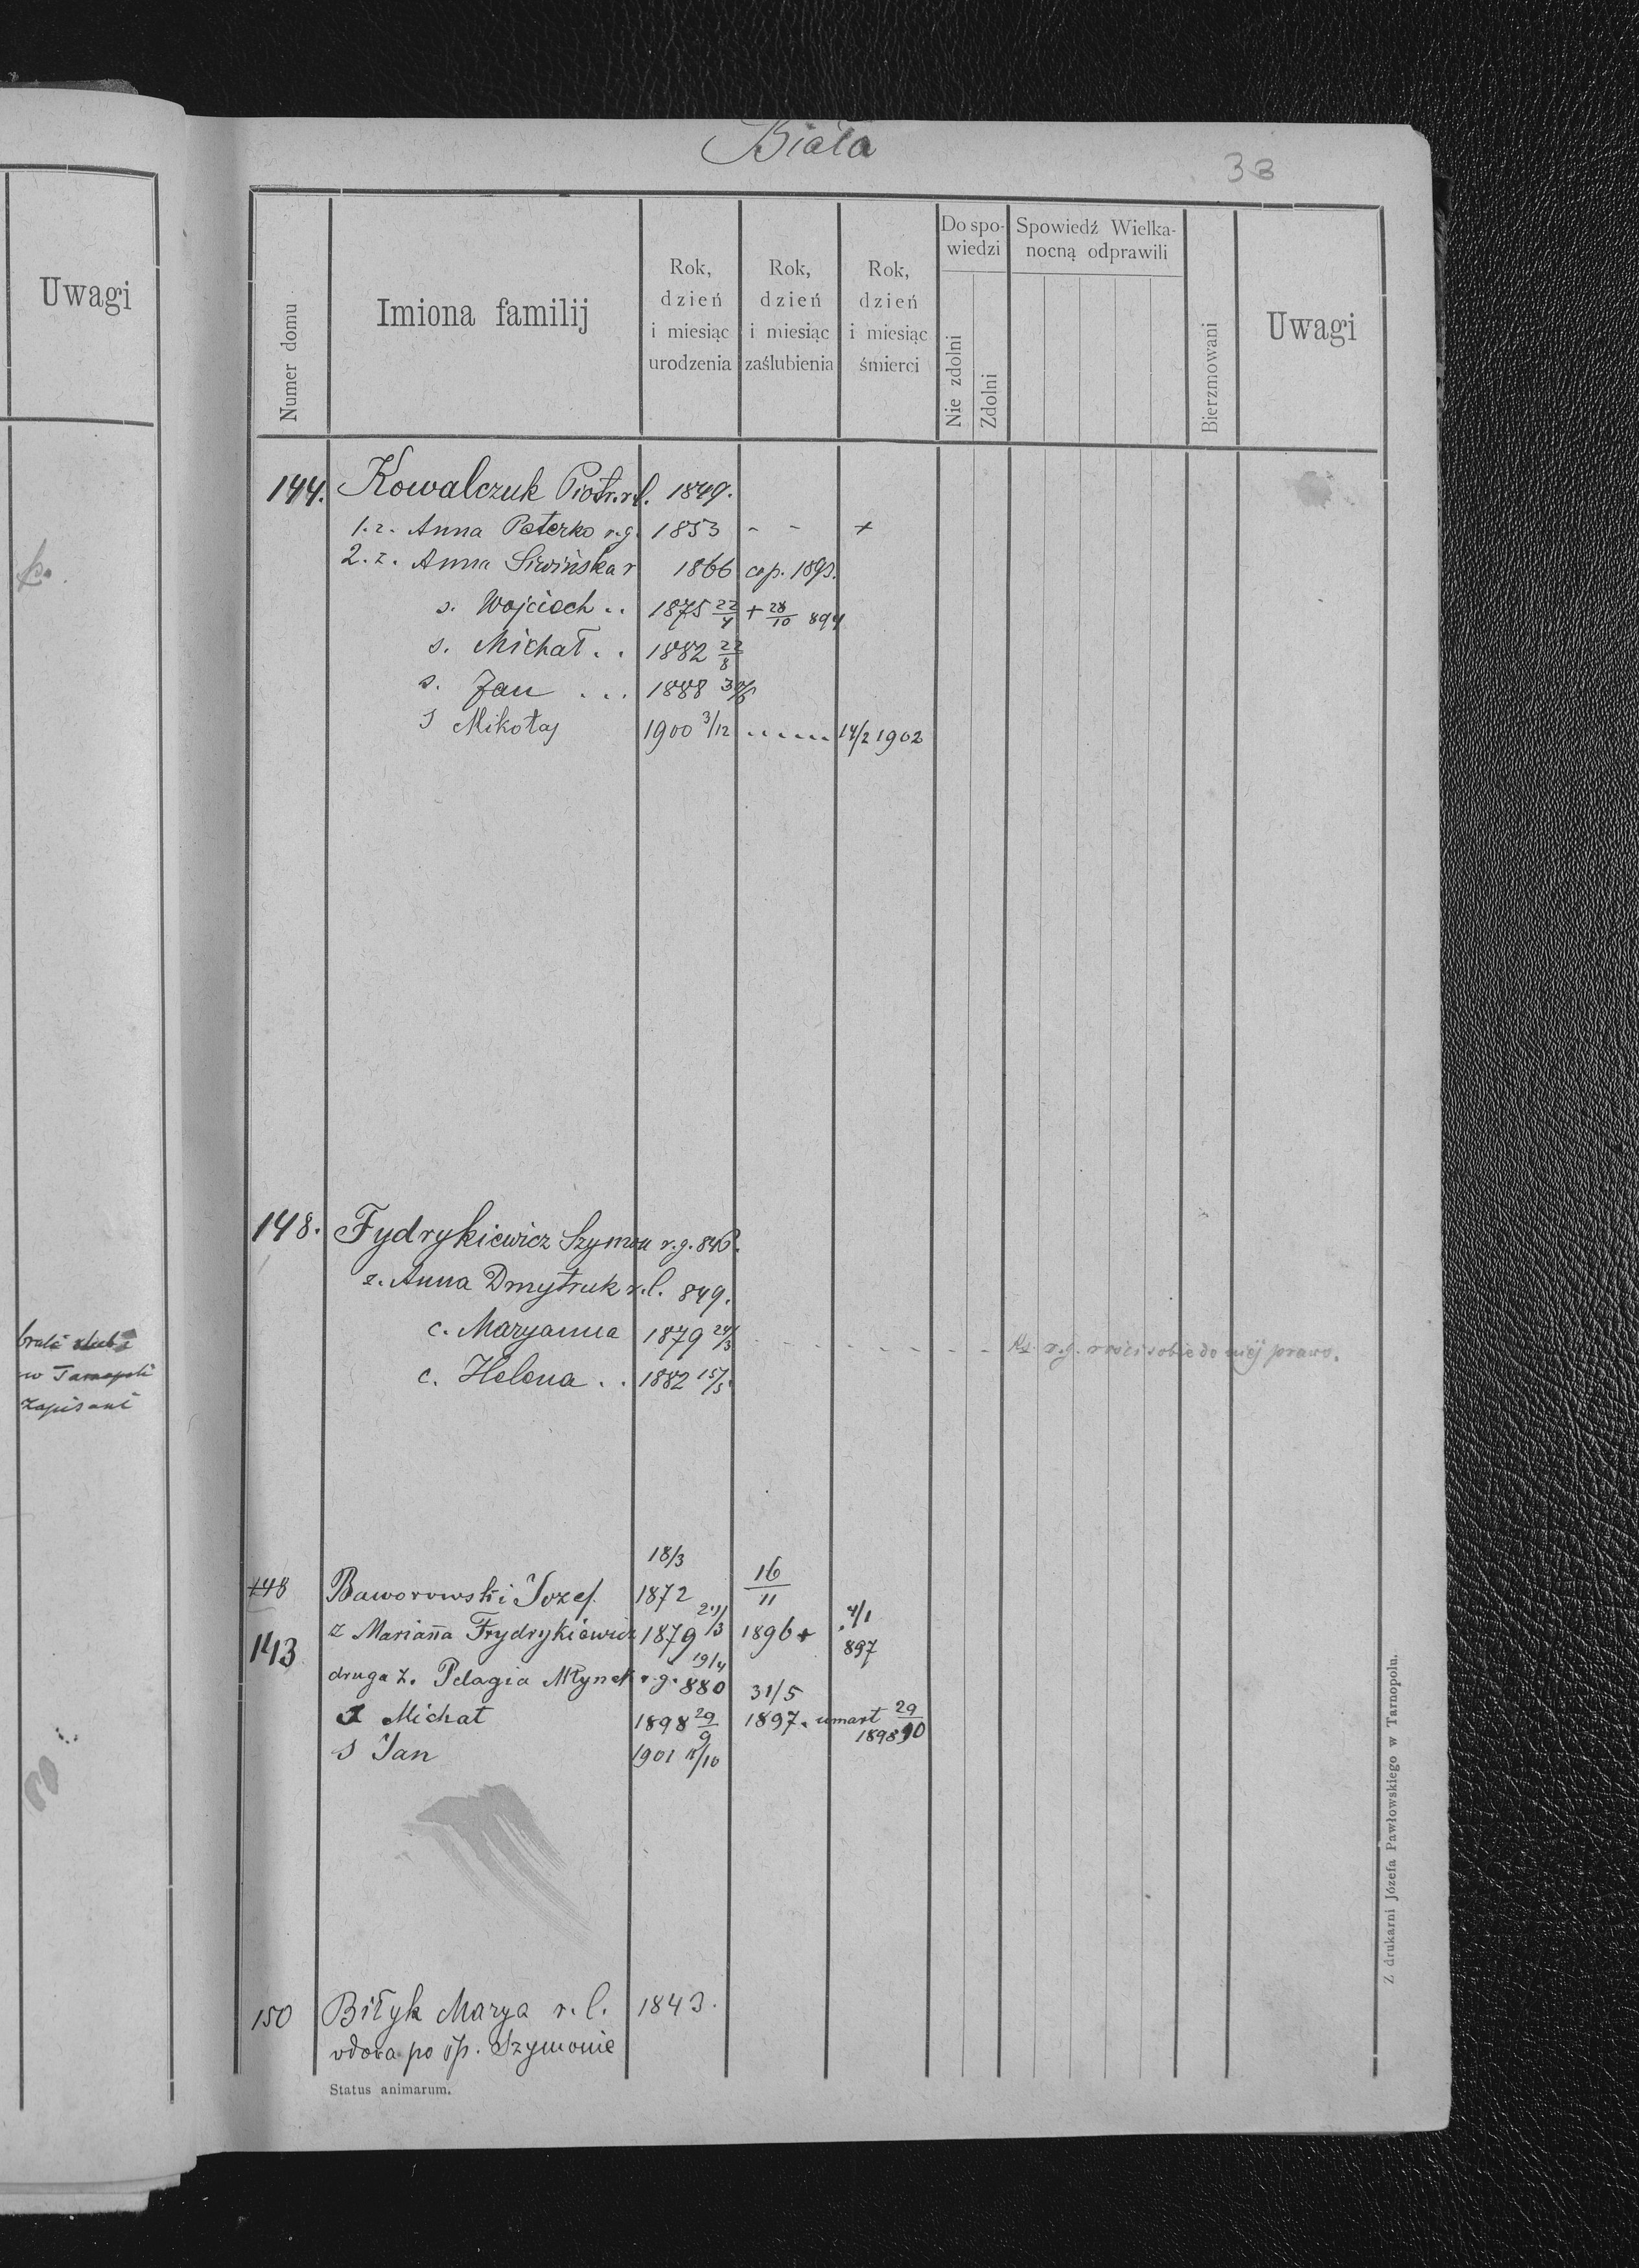 Biała
33
Uwagi
Numer domu
Imiona familij
Rok, dzień i miesiąc urodzenia
Rok, dzień i miesiąc zaślubienia
Rok, dzień i miesiąc śmierci
Do spowiedzi
Nie zdolni
Zdolni
Spowiedź Wielkanocną odprawili
Bierzmowani
Uwagi
144. Kowalczuk Piotr r.l. 1849.
1. ż. Anna Paterko r.g. 1853 - - +
2. ż. Anna Siwińska r 1866 cop. 189
s. Wojciech .. 1875 22/4 + 28/10 894
s. Michał .. 1882 22/8
s. Jan ... 1888
S Mikołaj 1900 3/12 ..... 14/2 1902
148. Fydrykiewicz Szymon r.g. 846.
ż. Anna Dmytruk r.l. 849.
c. Maryanna 1879 24/3 - - - - - - - r.g. rości sobie do niej prawo.
c. Helena .. 1882 15/5
brali ślub
w Tarnopoli
zapisani
18/3 16/11
148 Baworowski Jozef 1872
143 ż Marianna Frydrykiewicz 1879 24/3 1896 + 4/1 897
druga ż. Pelagia Młynek r.g. 19/4 880 31/5
S Michał 1898 29/9 1897. umarł 29/10 1898
S Jan 1901 11/10
150 Biłyk Marya r.l. 1843.
wdowa po śp. Szymonie
Status animarum.
Z drukarni Józefa Pawłowskiego w Tarnopolu.